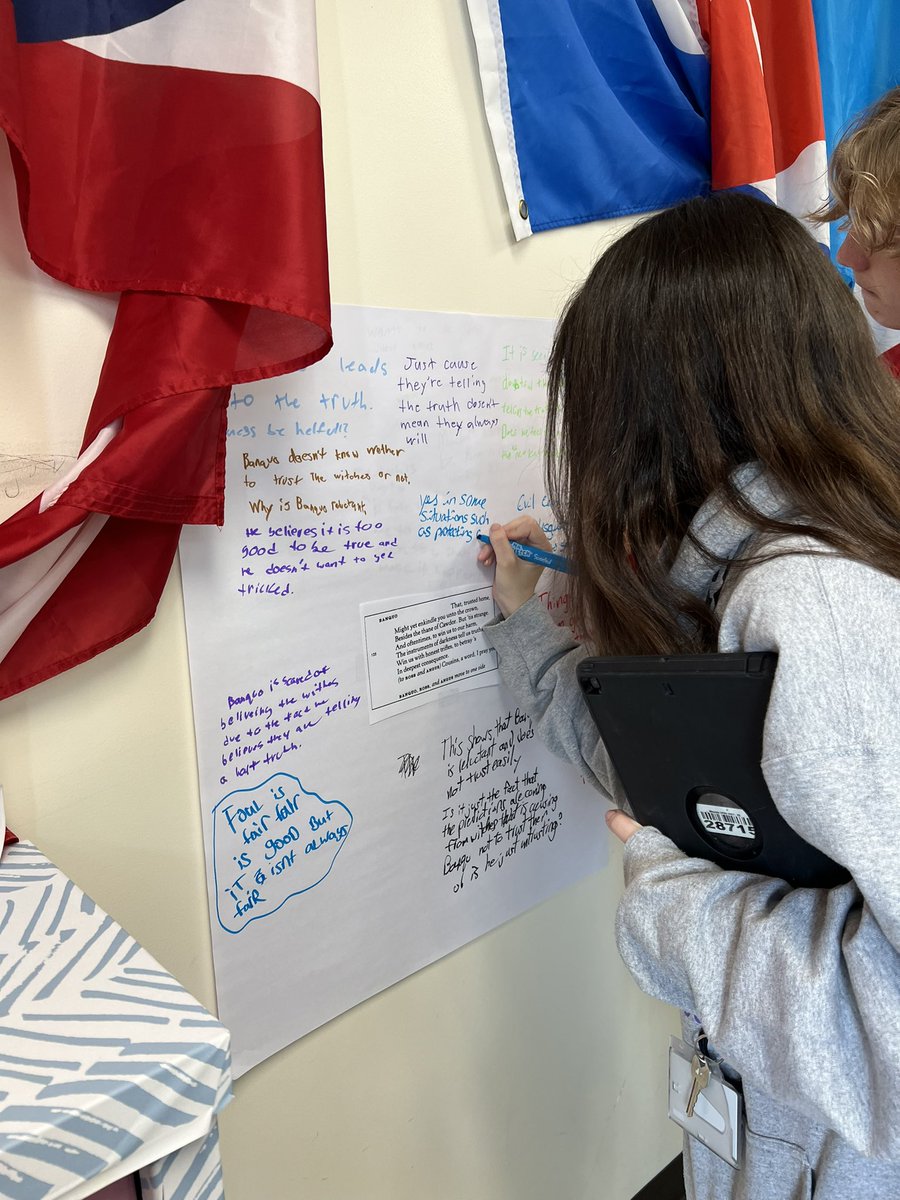 leads
to the truth.
be helfull?
Just cause
they're telling
the truth doesn't
mean they always
will
It is
Banquo doesn't know wether
to trust the witches or not,
Why is Banquo reluctant,
He believes it is too
good to be true and
he doesn't want to get
tricked.
yes in some
situations such
as protecting
Evil
BANQUO
That, trusted home,
Might yet enkindle you unto the crown,
Besides the thane of Cawdor. But 'tis strange,
And oftentimes, to win us to our harm,
The instruments of darkness tell us truths,
Win us with honest trifles, to betray 's
In deepest consequence.
(to ROSS and ANGUS) Cousins, a word, I pray you
BANQUO, ROSS, and ANGUS move to one side
Banquo is scared of
beliveing the withes
due to the fact he
believes they are telling
a half truth.
This shows, that
is reluctant and does
not trust easily
Is it just the fact that
the predictions are coming
from witches that is causing
Banquo not to trust them
or is he just untrusting?
Foul is
fair fair
is good But
iT isnt always
faiR
28715